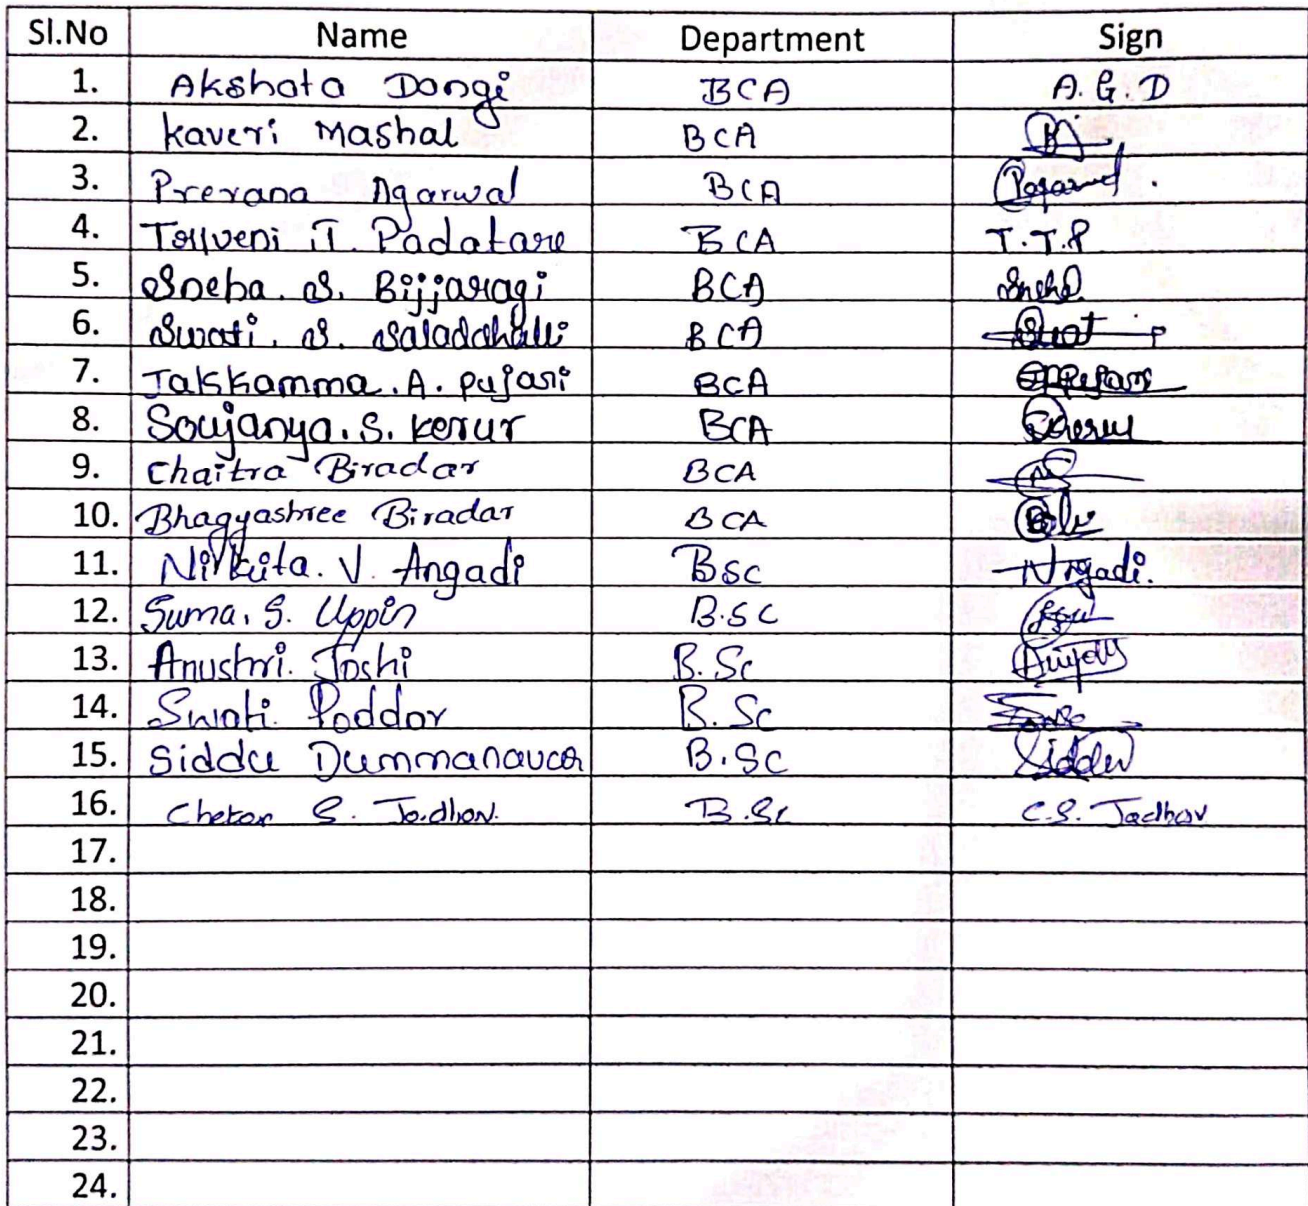 Sl.No Name Department Sign
1. Akshata Dongi BCA A.G.D
2. Kaveri Mashal BCA
3. Prerana Agarwal BCA
4. T. Padatare BCA T.T.P
5. Sneha. S. Bijjaragi BCA Sneha
6. Swati. S. Saladahalli BCA Swat
7. Jakkamma. A. Pujari BCA
8. Soujanya. S. Kerur BCA
9. Chaitra Biradar BCA
10. Bhagyashree Biradar BCA
11. V. Angadi BSC
12. Suma. S. Uppin B.SC
13. Anushri. Joshi B.Sc
14. Swati. Poddar B.Sc
15. Siddu Dummanavar B.Sc Siddu
16. Chetan S. Jadhav. B.Sc C.S. Jadhav
17.
18.
19.
20.
21.
22.
23.
24.